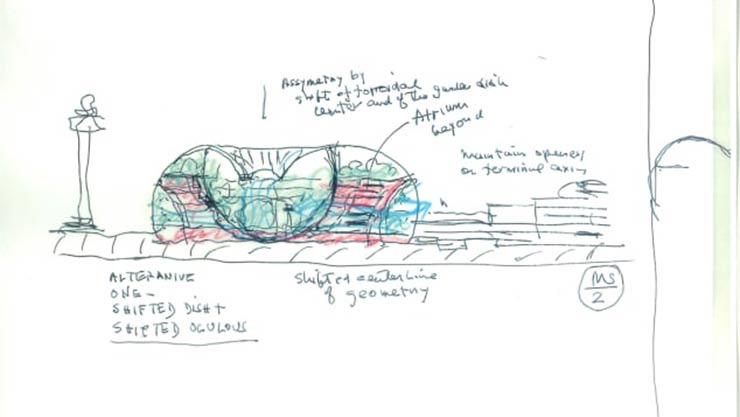 Assymetry by
shift of torroidal
center and of the garden dish
Atrium
beyond
Maintain openness
on terminal axis
ALTERANIVE
ONE-
SHIFTED DISH +
SHIFTED OCULOUS
Shifted centerline
of geometry
MS
2